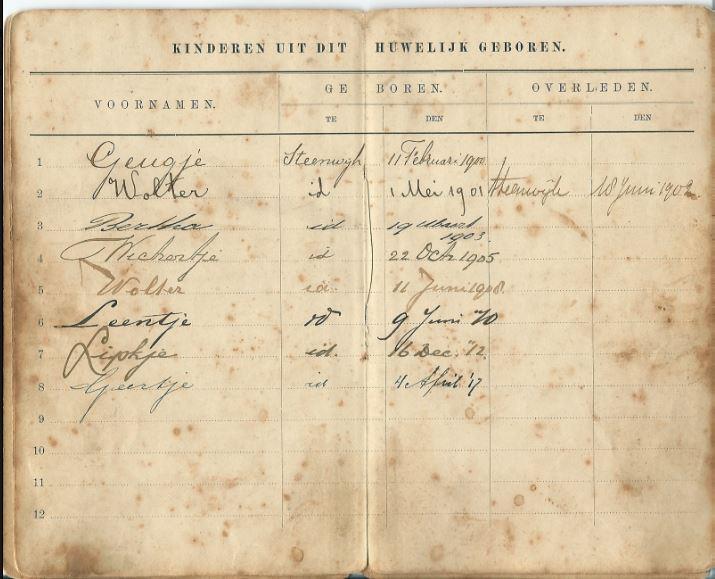 KINDEREN UIT DIT HUWELIJK GEBOREN.
VOORNAMEN. GEBOREN. OVERLEDEN.
TE DEN TE DEN
1 Geugje Steenwyk 11 Februari 1900
2 Wolter id 1 Mei 1901 Steenwijk 18 Juni 1902
3 Bertha id 19 Maart 1903.
4 Wichertje id 22 Oct 1905
5 Wolter id. 11 Juni 1908.
6 Leentje id 9 Juni '10
7 id. 16 Dec. '12.
8 Geertje id 4 April '17
9
10
11
12